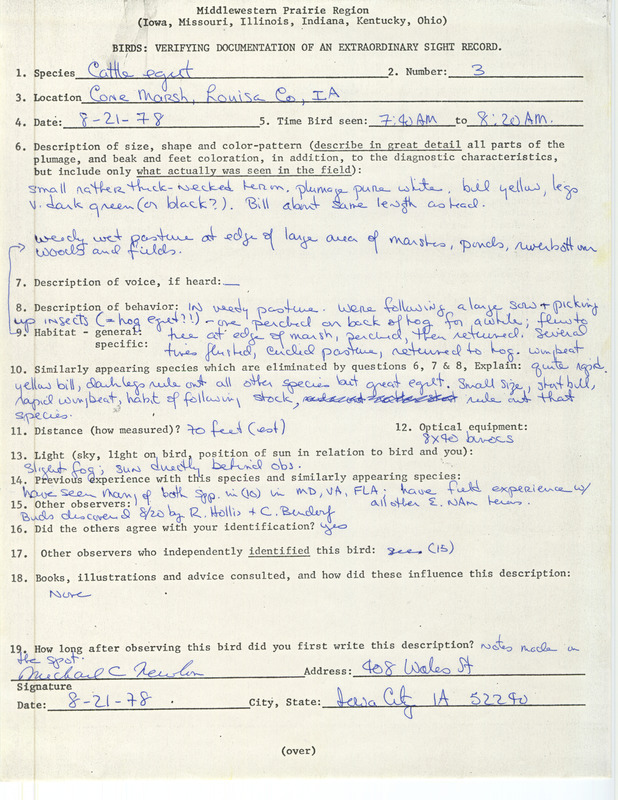 Middlewestern Prairie Region
(Iowa, Missouri, Illinois, Indiana, Kentucky, Ohio)
BIRDS: VERIFYING DOCUMENTATION OF AN EXTRAORDINARY SIGHT RECORD.
1. Species Cattle egret 2. Number: 3
3. Location Cone Marsh, Louisa Co, IA
4. Date: 8-21-78 5. Time Bird seen: 7:40 AM to 8:20 AM.
6. Description of size, shape and color-pattern (describe in great detail all parts of the
plumage, and beak and feet coloration, in addition, to the diagnostic characteristics,
but include only what actually was seen in the field):
small rather thick-necked heron. plumage pure white. bill yellow, legs
v. dark green (or black?). Bill about same length as head.
weedy wet pasture at edge of large area of marshes, ponds, riverbottom
woods and fields.
7. Description of voice, if heard: —
8. Description of behavior: IN weedy pasture. Were following a large sow + picking
up insects (= hog egret?!) - one perched on back of hog for awhile; flew to
9. Habitat - general: tree at edge of marsh, perched, then returned. Several
specific: times flushed, circled pasture, returned to hog. wingbeat
10. Similarly appearing species which are eliminated by questions 6, 7 & 8, Explain: quite rapid.
yellow bill, dark legs rule out all other species but great egret. Small size, short bill,
rapid wingbeat, habit of following stock, rule out that
species.
11. Distance (how measured)? 70 feet (est) 12. Optical equipment:
8x40 binocs
13. Light (sky, light on bird, position of sun in relation to bird and you):
slight fog; sun directly behind obs.
14. Previous experience with this species and similarly appearing species:
have seen many of both spp. in (10) in MD, VA, FLA; have field experience w/
15. Other observers: all other E. NAm herons.
Birds discovered 8/20 by R. Hollis + C. Bendorf
16. Did the others agree with your identification? yes
17. Other observers who independently identified this bird: see (15)
18. Books, illustrations and advice consulted, and how did these influence this description:
None
19. How long after observing this bird did you first write this description? Notes made on
the spot.
Michael C Newlon Address: 408 Wales St
Signature
Date: 8-21-78 City, State: Iowa City IA 52240
(over)